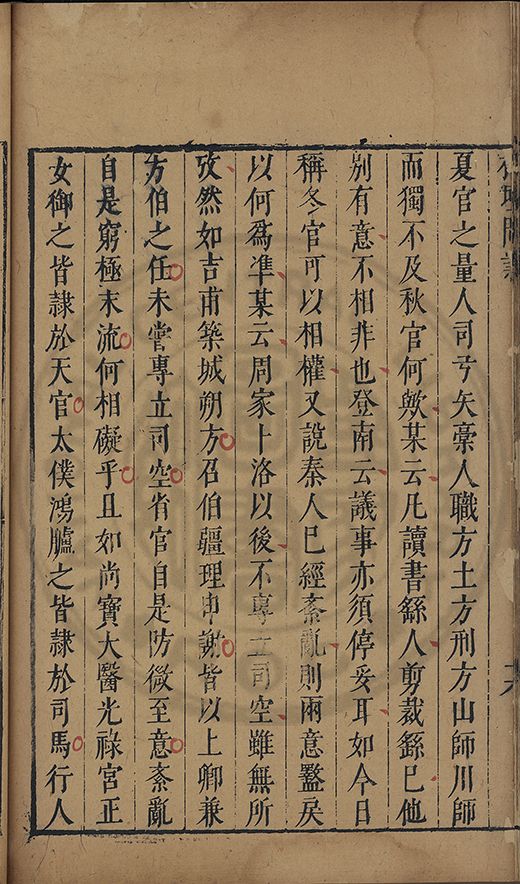 夏官之量人司弓矢稾人職方土方刑方山師川師
而獨不及秋官何歟某云凡讀書繇人剪裁繇已他
別有意不相非也登南云議事亦須停妥耳如今日
稱冬官可以相權又說秦人已經紊亂則兩意盭戾
以何為凖某云周家卜洛以後不專立司空雖無所
攷然如吉甫築城朔方召伯疆理申謝皆以上卿兼
方伯之任未嘗專立司空省官自是防微至意紊亂
自是窮極末流何相礙乎且如尚寶大醫光祿宮正
女御之皆隷於天官太僕鴻臚之皆隷於司馬行人